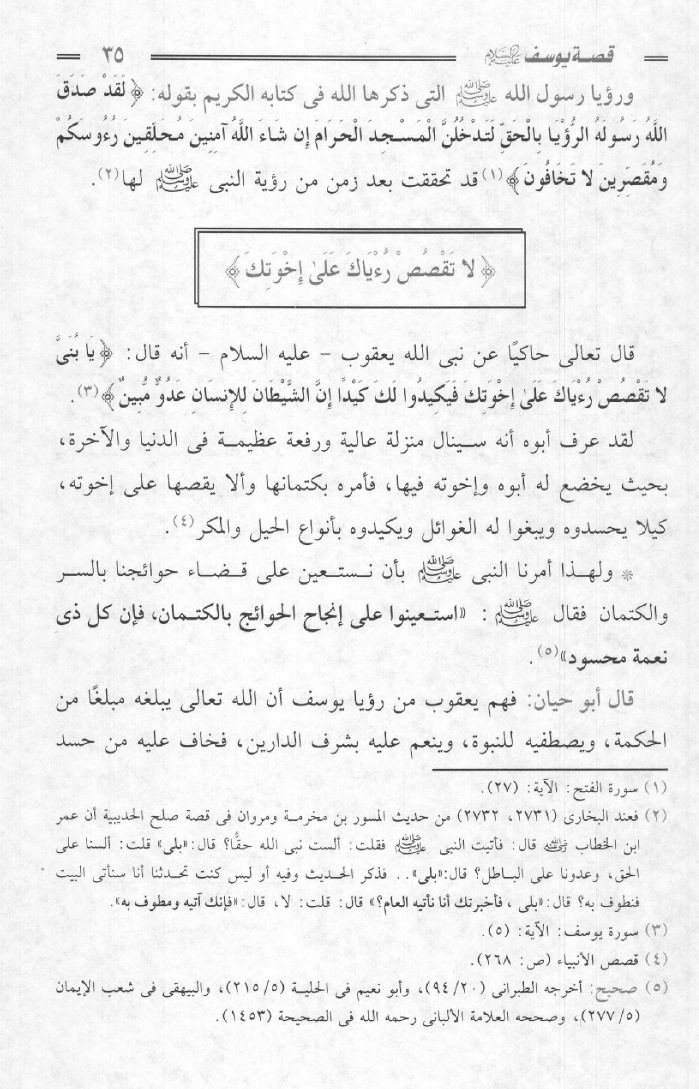 قصة يوسف عليه السلام ٣٥
ورؤيا رسول الله ﷺ التى ذكرها الله فى كتابه الكريم بقوله: ﴿ لَقَدْ صَدَقَ
اللَّهُ رَسُولَهُ الرُّؤْيَا بِالْحَقِّ لَتَدْخُلُنَّ الْمَسْجِدَ الْحَرَامَ إِن شَاءَ اللَّهُ آمِنِينَ مُحَلِّقِينَ رُءُوسَكُمْ
وَمُقَصِّرِينَ لا تَخَافُونَ ﴾(١) قد تحققت بعد زمن من رؤية النبى ﷺ لها(٢).
﴿ لا تَقْصُصْ رُءْيَاكَ عَلَىٰ إِخْوَتِكَ ﴾
قال تعالى حاكيًا عن نبى الله يعقوب – عليه السلام – أنه قال: ﴿ يَا بُنَىَّ
لا تَقْصُصْ رُءْيَاكَ عَلَىٰ إِخْوَتِكَ فَيَكِيدُوا لَكَ كَيْدًا إِنَّ الشَّيْطَانَ لِلإِنسَانِ عَدُوٌّ مُّبِينٌ ﴾(٣).
لقد عرف أبوه أنه سينال منزلة عالية ورفعة عظيمة فى الدنيا والآخرة،
بحيث يخضع له أبوه وإخوته فيها، فأمره بكتمانها وألا يقصها على إخوته،
كيلا يحسدوه ويبغوا له الغوائل ويكيدوه بأنواع الحيل والمكر(٤).
* ولهذا أمرنا النبى ﷺ بأن نستعين على قضاء حوائجنا بالسر
والكتمان فقال ﷺ: «استعينوا على إنجاح الحوائج بالكتمان، فإن كل ذى
نعمة محسود»(٥).
قال أبو حيان: فهم يعقوب من رؤيا يوسف أن الله تعالى يبلغه مبلغًا من
الحكمة، ويصطفيه للنبوة، وينعم عليه بشرف الدارين، فخاف عليه من حسد
(١) سورة الفتح: الآية: (٢٧).
(٢) فعند البخارى (٢٧٣١، ٢٧٣٢) من حديث المسور بن مخرمة ومروان فى قصة صلح الحديبية أن عمر
ابن الخطاب رضي الله عنه قال: فأتيت النبى ﷺ فقلت: ألست نبى الله حقًّا؟ قال: «بلى» قلت: ألسنا على
الحق، وعدونا على الباطل؟ قال: «بلى».. فذكر الحديث وفيه أو ليس كنت تحدثنا أنا سنأتى البيت
فنطوف به؟ قال: «بلى ، فأخبرتك أنا نأتيه العام؟» قال: قلت: لا، قال: «فإنك آتيه ومطوف به».
(٣) سورة يوسف: الآية: (٥).
(٤) قصص الأنبياء (ص: ٢٦٨).
(٥) صحيح: أخرجه الطبرانى (٩٤/٢٠)، وأبو نعيم فى الحلية (٢١٥/٥)، والبيهقى فى شعب الإيمان
(٢٧٧/٥)، وصححه العلامة الألبانى رحمه الله فى الصحيحة (١٤٥٣).